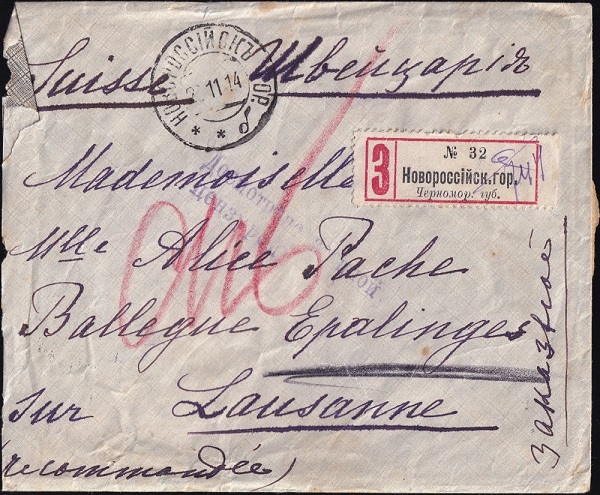 Suisse Швейцарія
НОВОРОССІЙСКЪ ГОР.
11 14
* * б
З
№ 32
Новороссійск.гор.
Черномор. губ.
Mademoiselle
Mlle Alice Pache
Ballegue Epalinges
sur Lausanne
(recommandée)
заказное